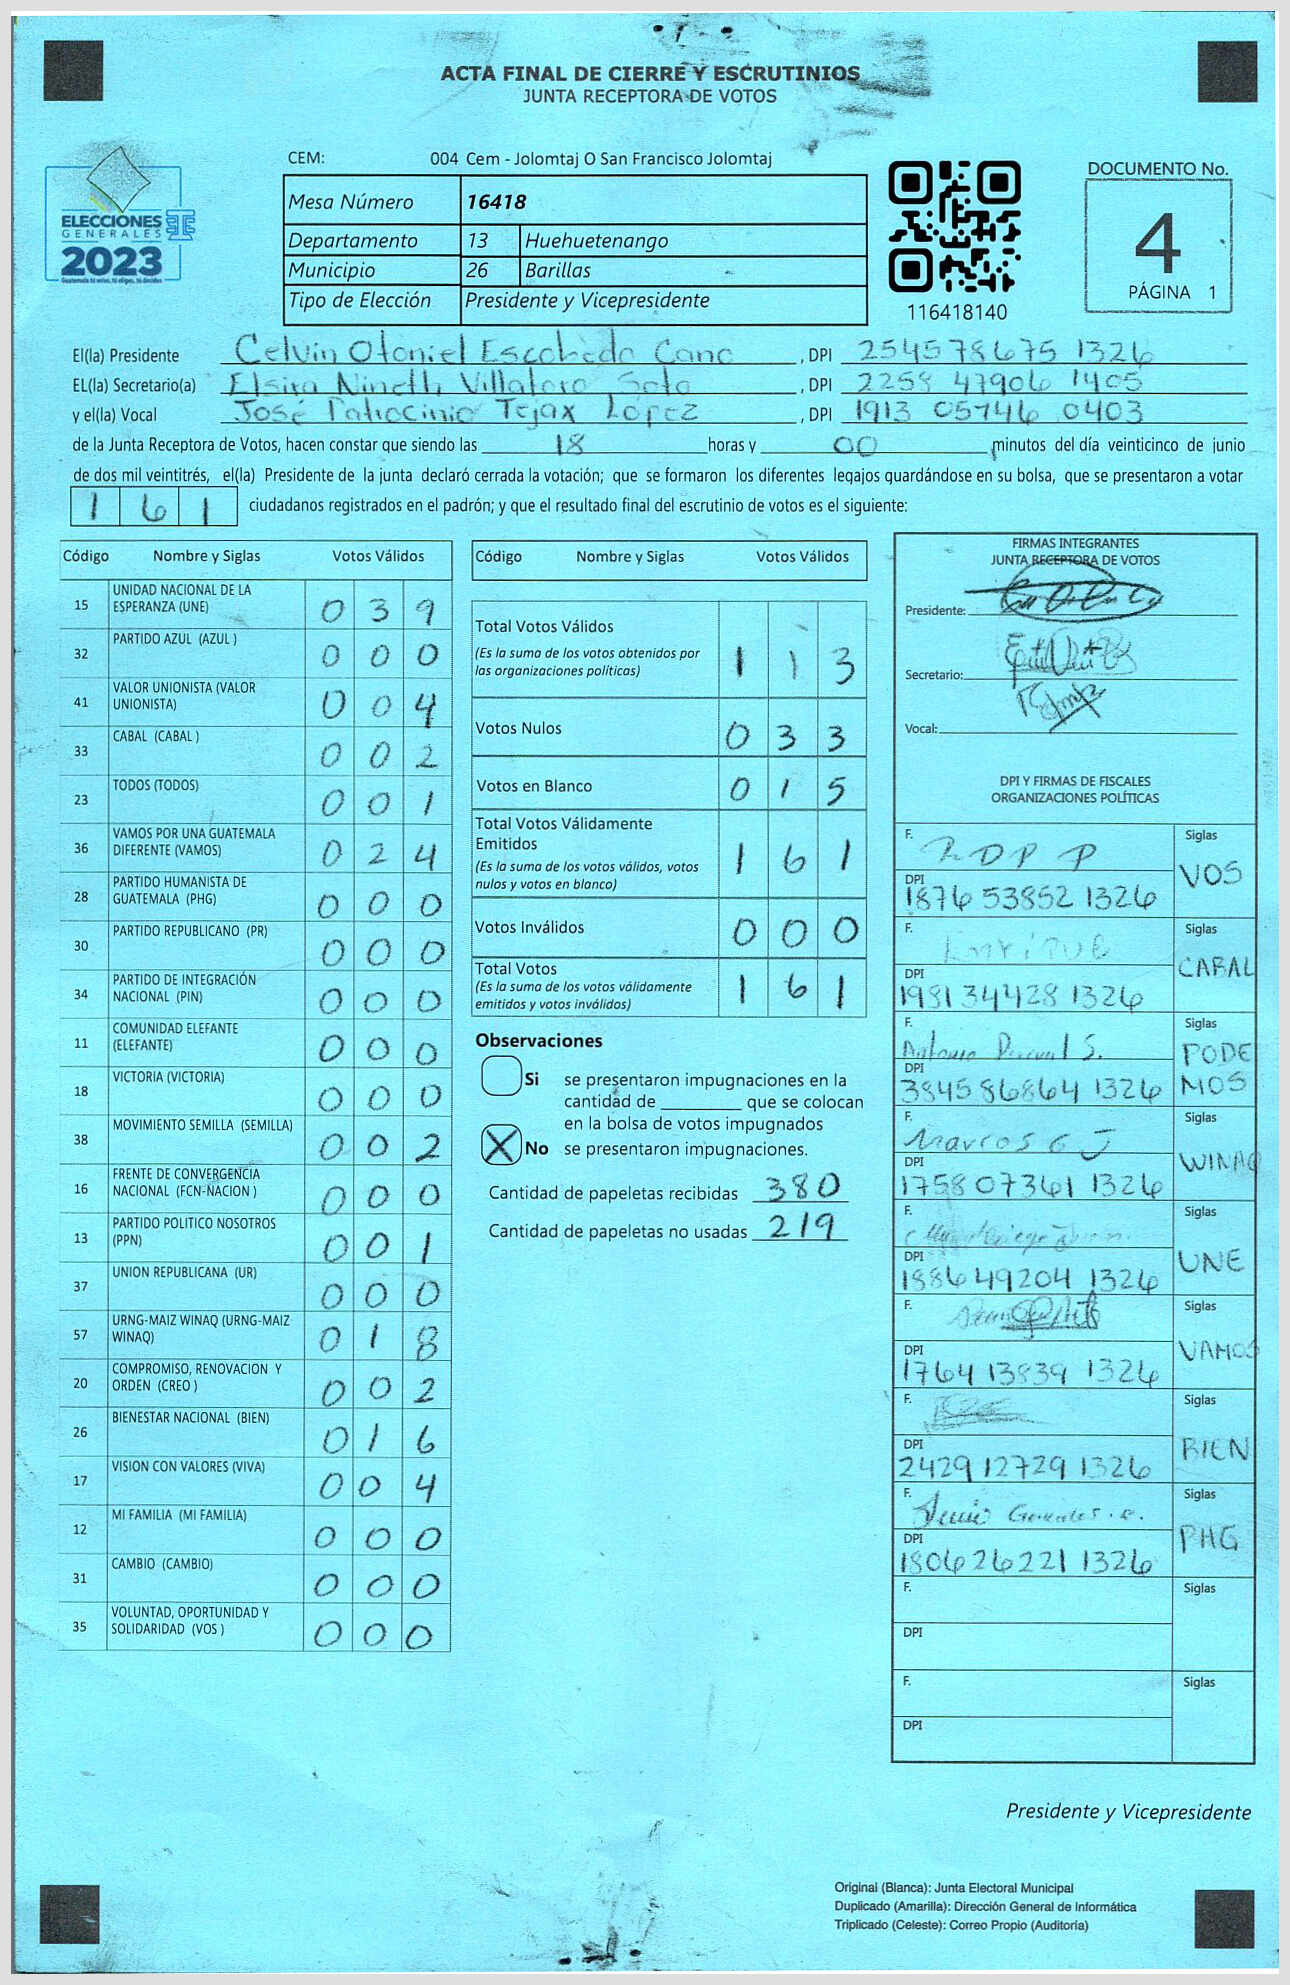 ACTA FINAL DE CIERRE Y ESCRUTINIOS
JUNTA RECEPTORA DE VOTOS
CEM: 004 Cem - Jolomtaj O San Francisco Jolomtaj
ELECCIONES
GENERALES
2023
Mesa Número 16418
Departamento 13 Huehuetenango
Municipio 26 Barillas
Tipo de Elección Presidente y Vicepresidente
116418140
DOCUMENTO No.
4
PÁGINA 1
El(la) Presidente Celvin Otoniel Escobedo Cano , DPI 254578675 1326
EL(la) Secretario(a) Elsira Nineth Villatoro Soto , DPI 2258 47906 1405
y el(la) Vocal José Patrocinio Tejax López , DPI 1913 05746 0403
de la Junta Receptora de Votos, hacen constar que siendo las 18 horas y 00 minutos del día veinticinco de junio
de dos mil veintitrés, el(la) Presidente de la junta declaró cerrada la votación; que se formaron los diferentes legajos guardándose en su bolsa, que se presentaron a votar
161 ciudadanos registrados en el padrón; y que el resultado final del escrutinio de votos es el siguiente:
Código Nombre y Siglas Votos Válidos
15 UNIDAD NACIONAL DE LA ESPERANZA (UNE) 0 3 9
32 PARTIDO AZUL (AZUL ) 0 0 0
41 VALOR UNIONISTA (VALOR UNIONISTA) 0 0 4
33 CABAL (CABAL ) 0 0 2
23 TODOS (TODOS) 0 0 1
36 VAMOS POR UNA GUATEMALA DIFERENTE (VAMOS) 0 2 4
28 PARTIDO HUMANISTA DE GUATEMALA (PHG) 0 0 0
30 PARTIDO REPUBLICANO (PR) 0 0 0
34 PARTIDO DE INTEGRACIÓN NACIONAL (PIN) 0 0 0
11 COMUNIDAD ELEFANTE (ELEFANTE) 0 0 0
18 VICTORIA (VICTORIA) 0 0 0
38 MOVIMIENTO SEMILLA (SEMILLA) 0 0 2
16 FRENTE DE CONVERGENCIA NACIONAL (FCN-NACION ) 0 0 0
13 PARTIDO POLITICO NOSOTROS (PPN) 0 0 1
37 UNION REPUBLICANA (UR) 0 0 0
57 URNG-MAIZ WINAQ (URNG-MAIZ WINAQ) 0 1 8
20 COMPROMISO, RENOVACION Y ORDEN (CREO ) 0 0 2
26 BIENESTAR NACIONAL (BIEN) 0 1 6
17 VISION CON VALORES (VIVA) 0 0 4
12 MI FAMILIA (MI FAMILIA) 0 0 0
31 CAMBIO (CAMBIO) 0 0 0
35 VOLUNTAD, OPORTUNIDAD Y SOLIDARIDAD (VOS ) 0 0 0
Código Nombre y Siglas Votos Válidos
Total Votos Válidos 1 1 3
(Es la suma de los votos obtenidos por
las organizaciones políticas)
Votos Nulos 0 3 3
Votos en Blanco 0 1 5
Total Votos Válidamente
Emitidos 1 6 1
(Es la suma de los votos válidos, votos
nulos y votos en blanco)
Votos Inválidos 0 0 0
Total Votos 1 6 1
(Es la suma de los votos válidamente
emitidos y votos inválidos)
Observaciones
Si se presentaron impugnaciones en la
cantidad de ________ que se colocan
en la bolsa de votos impugnados
X No se presentaron impugnaciones.
Cantidad de papeletas recibidas 380
Cantidad de papeletas no usadas 219
FIRMAS INTEGRANTES
JUNTA RECEPTORA DE VOTOS
Presidente:
Secretario:
Vocal:
DPI Y FIRMAS DE FISCALES
ORGANIZACIONES POLÍTICAS
F. RDPP Siglas VOS
DPI 1876 53852 1326
F. Siglas CABAL
DPI 1981 34428 1326
F. Antonio S. Siglas PODEMOS
DPI 3845 86864 1326
F. Marcos G J Siglas WINAQ
DPI 1758 07361 1326
F. Siglas UNE
DPI 1886 49204 1326
F. Siglas VAMOS
DPI 1764 13839 1326
F. Siglas BIEN
DPI 2429 12729 1326
F. Siglas PHG
DPI 1806 26221 1326
F. Siglas
DPI
F. Siglas
DPI
Presidente y Vicepresidente
Original (Blanca): Junta Electoral Municipal
Duplicado (Amarilla): Dirección General de Informática
Triplicado (Celeste): Correo Propio (Auditoría)